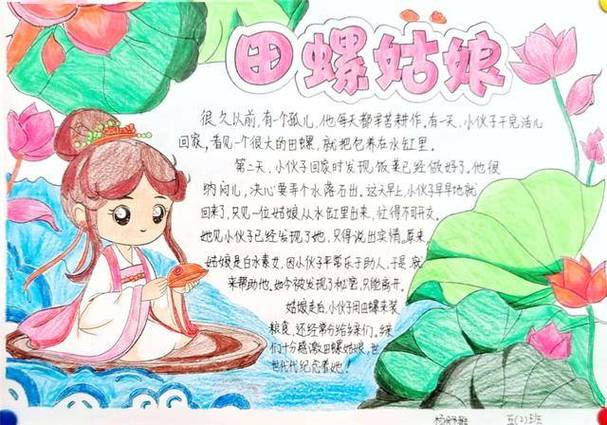 田螺姑娘
很久以前,有一个孤儿,他每天都辛苦耕作。有一天,小伙子干完活儿
回家,看见一个很大的田螺,就把它养在水缸里。
第二天,小伙子回家时发现饭菜已经做好了,他很
纳闷儿,决心要弄个水落石出。这天早上,小伙子早早地就
回来了,只见一位姑娘从水缸里出来,忙得不可开交。
她见小伙子已经发现了她,只得说出实情。原来
姑娘是白水素女,因小伙子平常乐于助人,于是
来帮助他。如今被发现了秘密,只能离开。
姑娘走后,小伙子用田螺来装
粮食,还经常分给乡亲们,乡亲
们十分感激田螺姑娘,世
世代代纪念着她!
杨 五(2)班